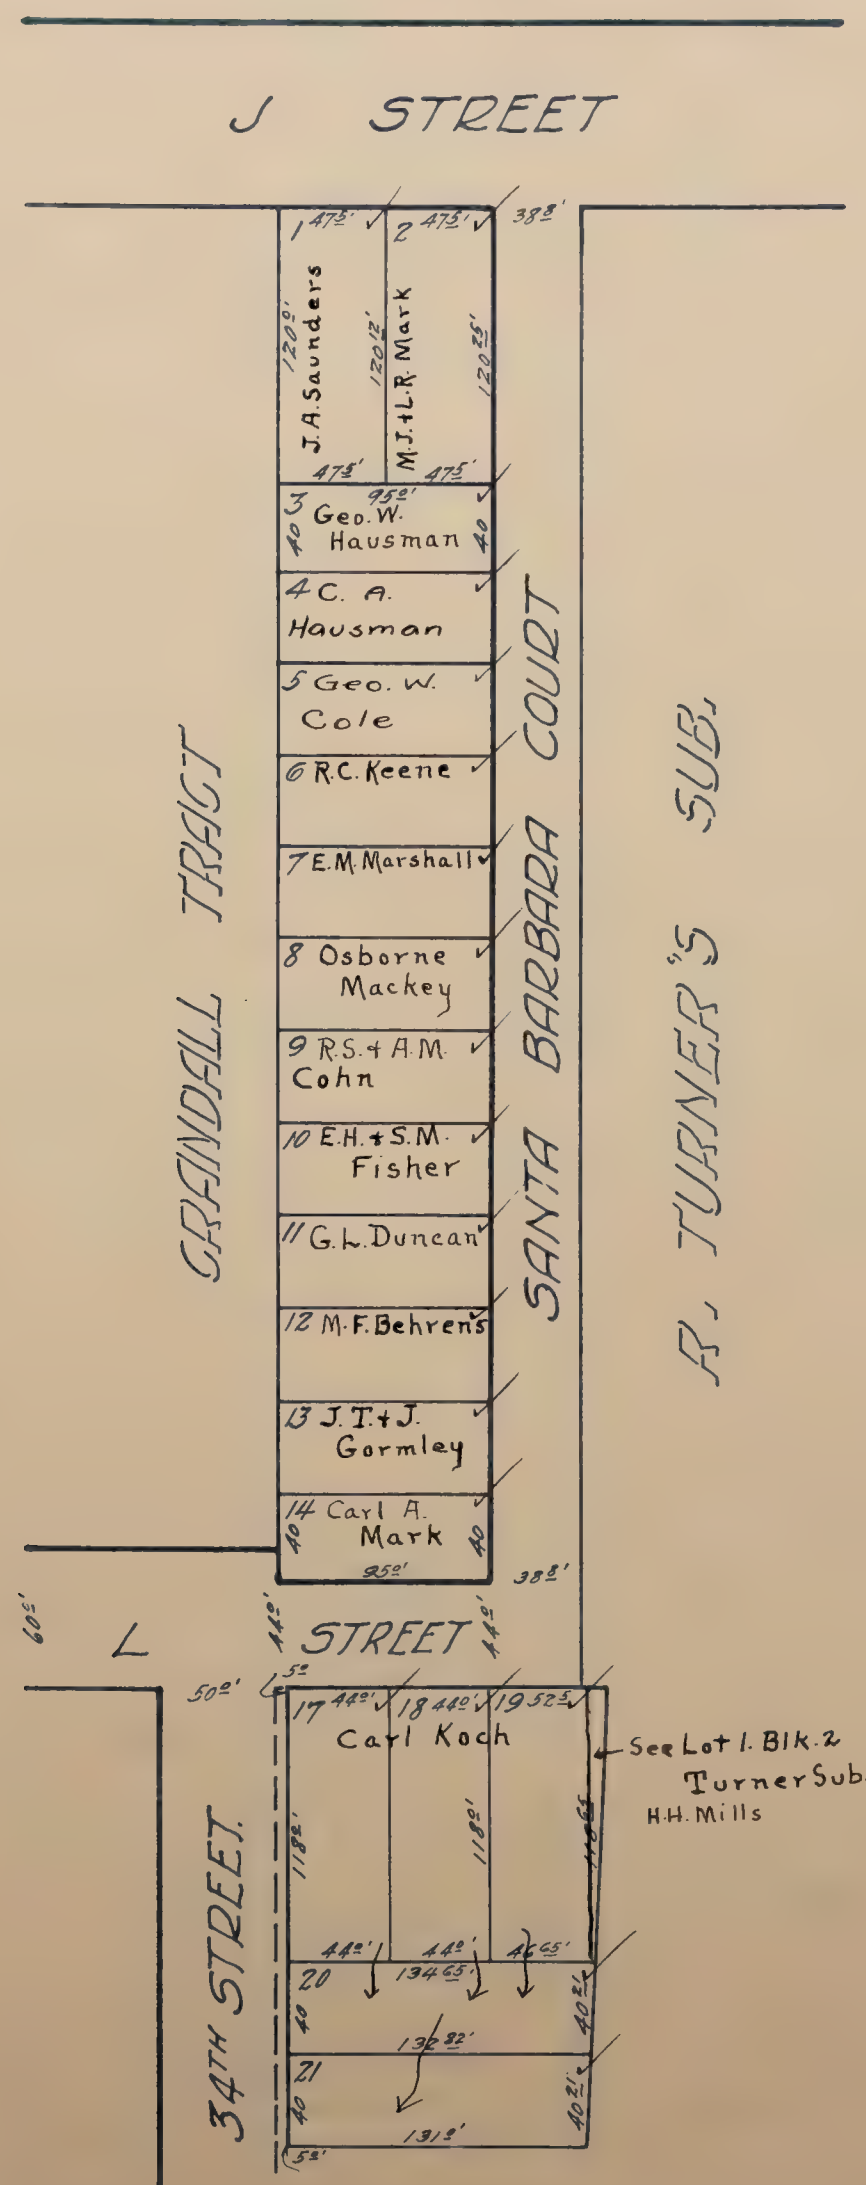 J STREET
1 47⁵' 2 47⁵' 38⁸'
120⁰'
J.A. Saunders
120¹²'
M.J. + L.R. Mark
120²⁵'
47⁵' 47⁵'
95⁰'
3 Geo. W.
Hausman
40 40
4 C. A.
Hausman
5 Geo. W.
Cole
6 R.C. Keene
7 E.M. Marshall
8 Osborne
Mackey
9 R.S. + A.M.
Cohn
10 E.H. + S.M.
Fisher
11 G.L. Duncan
12 M.F. Behrens
13 J.T. + J.
Gormley
14 Carl A.
Mark
40 40
95⁰' 38⁸'
CRANDALL TRACT
SANTA BARBARA COURT
R. TURNER'S SUB.
60⁰' L 44⁰' STREET 44⁰'
50⁰' 5⁰
17 44⁰' 18 44⁰' 19 52⁵
Carl Koch
See Lot 1. Blk. 2
Turner Sub.
H.H. Mills
118⁰' 118⁰' 118⁶⁵
44⁰' 44⁰' 46⁶⁵'
20 134⁶⁵'
40 40²¹
132⁸²'
21
40 40²¹'
131⁰'
5⁰'
34TH STREET.